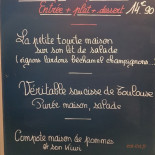 Entrée + plat + dessert 14€90
La petite tourte maison
sur son lit de salade
(oignons lardons béchamel champignons...)
Véritable saucisse de Toulouse
Purée maison, salade
Compote maison de pommes
& son